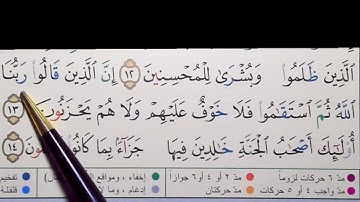 الَّذِينَ ظَلَمُوا وَبُشْرَىٰ لِلْمُحْسِنِينَ ١٢ إِنَّ الَّذِينَ قَالُوا رَبُّنَا
اللَّهُ ثُمَّ اسْتَقَامُوا فَلَا خَوْفٌ عَلَيْهِمْ وَلَا هُمْ يَحْزَنُونَ ١٣
أُولَٰئِكَ أَصْحَابُ الْجَنَّةِ خَالِدِينَ فِيهَا جَزَاءً بِمَا كَانُوا ١٤
مدّ ٦ حركات لزوماً مدّ ٢ أو ٤ أو ٦ جوازاً إخفاء، ومواقع تفخيم
مدّ واجب ٤ أو ٥ حركات مدّ حركتان إدغام، وما لا قلقلة